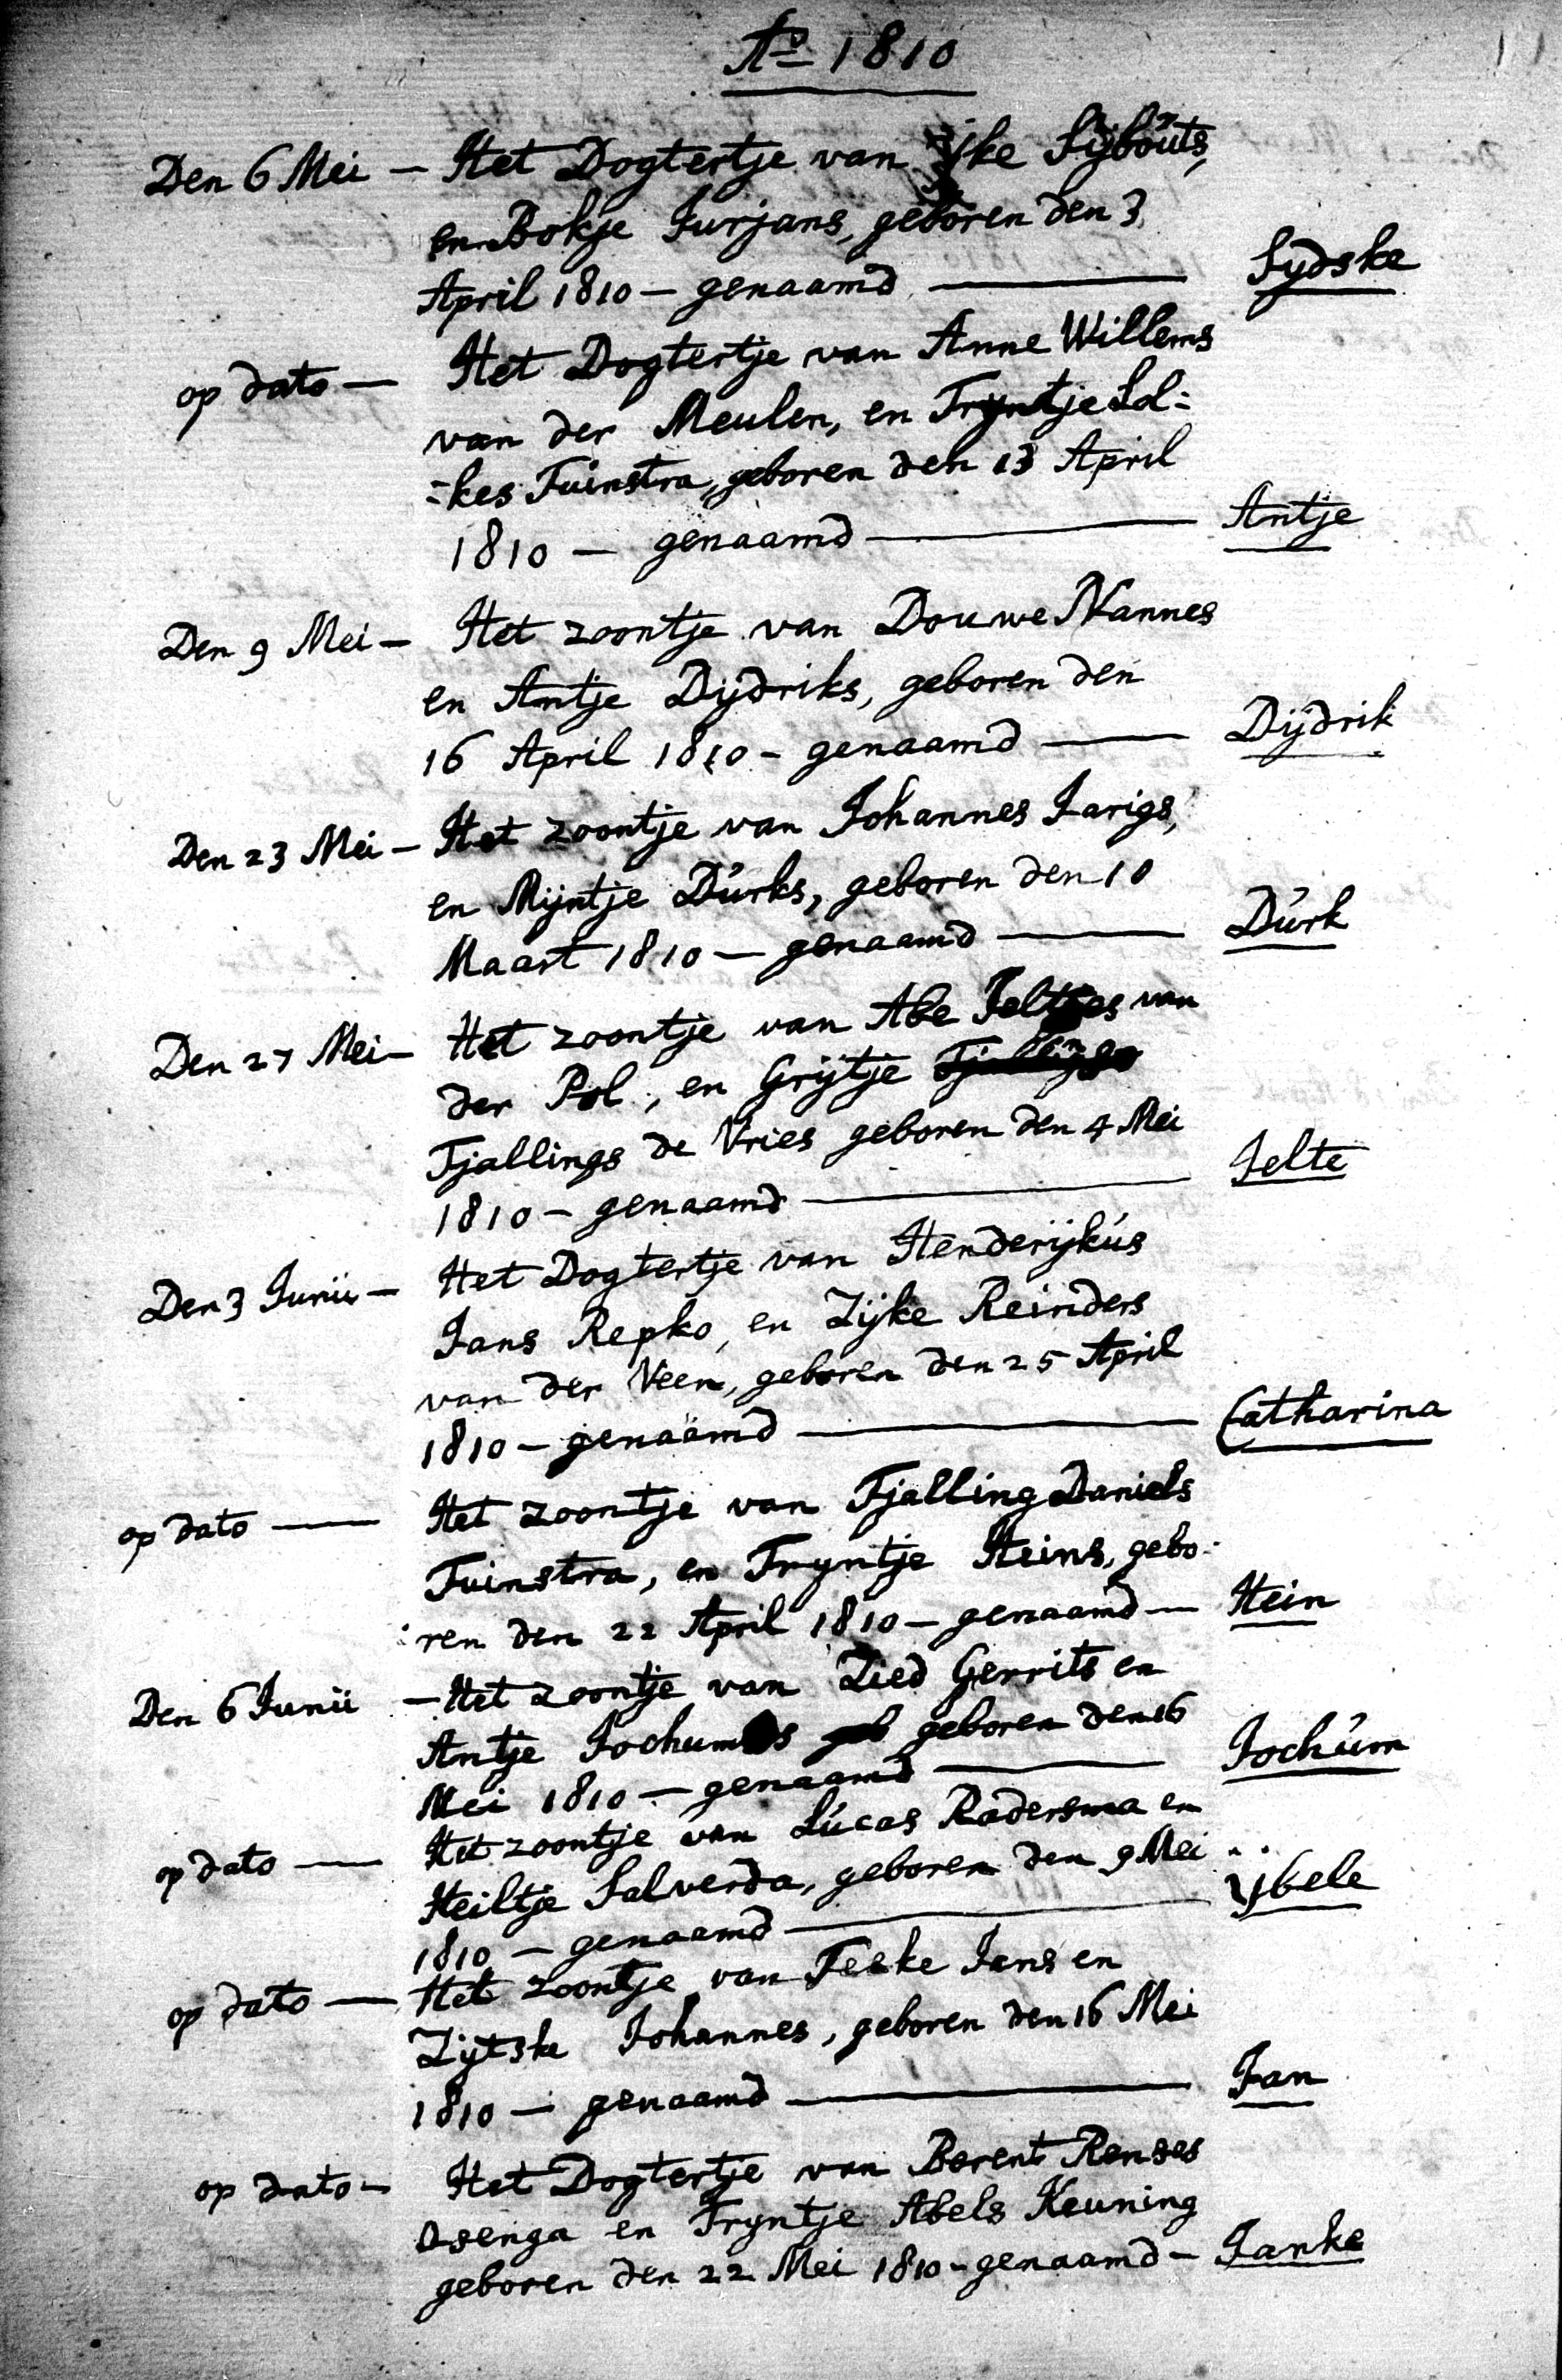 Ao 1810
Den 6 Mei — Het Dogtertje van ijke Sijbouts,
en Bokje Jurjans, geboren den 3
April 1810 — genaamd — Sydske
op dato — Het Dogtertje van Anne Willems
van der Meulen, en Tryntje Sol=
=kes Tuinstra, geboren den 13 April
1810 — genaamd — Antje
Den 9 Mei — Het zoontje van Douwe Nannes
en Antje Dijdriks, geboren den
16 April 1810 — genaamd — Dijdrik
Den 23 Mei — Het zoontje van Johannes Jarigs,
en Mijntje Dúrks, geboren den 10
Maart 1810 — genaamd — Dúrk
Den 27 Mei — Het zoontje van Abe Jeltjes van
der Pol, en Grijtje
Tjallings de Vries geboren den 4 Mei
1810 — genaamd — Jelte
Den 3 Junii — Het Dogtertje van Henderijkús
Jans Repko, en Zijke Reinders
van der Veen, geboren den 25 April
1810 — genaamd — Catharina
op dato — Het zoontje van Tjalling Daniels
Tuinstra, en Tryntje Heins, gebo-
:ren den 22 April 1810 — genaamd — Hein
Den 6 Junii — Het zoontje van Zied Gerrits en
Antje Jochums geboren den 16
Mei 1810 — genaamd — Jochúm
op dato — Het zoontje van Lúcas Radersma en
Heiltje Salverda, geboren den 9 Mei
1810 — genaamd — Ybele
op dato — Het zoontje van Feeke Jans en
Zijtske Johannes, geboren den 16 Mei
1810 — genaamd — Jan
op dato — Het Dogtertje van Berent Renses
Osenga en Tryntje Abels Keuning
geboren den 22 Mei 1810 — genaamd — Janke